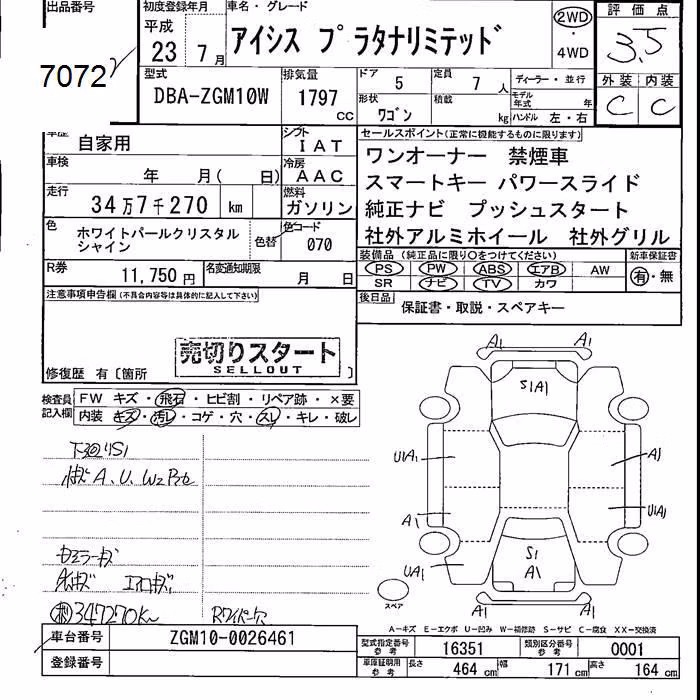 出品番号
7072
初度登録年月
平成
23 7 月
車名・グレード
アイシス プラタナリミテッド
2WD
・
4WD
評価点
3.5
外装 内装
C C
型式
DBA-ZGM10W
排気量
1797
CC
ドア 5
定員 7 人
形状 ワゴン
積載 kg
ディーラー・並行
モデル年式 年
ハンドル 左・右
車歴 自家用
シフト IAT
車検 年 月( 日)
冷房 AAC
走行 34万7千270 km
燃料 ガソリン
色 ホワイトパールクリスタルシャイン
色替
色コード 070
R券 11,750円
名変通知期限 月 日
セールスポイント(正常に機能するものに限ります)
ワンオーナー 禁煙車
スマートキー パワースライド
純正ナビ プッシュスタート
社外アルミホイール 社外グリル
装備品(純正品に限り○をつけてください)
新車保証書
PS PW ABS エアB AW
SR ナビ TV カワ
有・無
後日品 保証書・取説・スペアキー
注意事項申告欄(不具合内容等は具体的に記入して下さい)
売切りスタート
SELLOUT
修復歴 有〔箇所 〕
検査員記入欄
FW キズ・飛石・ヒビ割・リペア跡・×要
内装 キズ・汚レ・コゲ・穴・スレ・キレ・破レ
下廻りS1
キズA、U、W2
347270Km
A1 A1
S1A1
UA1 A1
A1 UA1
S1
A1
UA1
A1 A1
スペア
A-キズ E-エクボ U-凹み W-補修跡 S-サビ C-腐食 XX-交換済
車台番号 ZGM10-0026461
登録番号
型式指定番号 参考 16351
類別区分番号 参考 0001
車庫証明用 参考 長さ 464 cm 幅 171 cm 高さ 164 cm